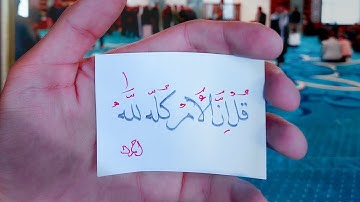 ١
قُلْ إِنَّ الْأَمْرَ كُلَّهُ لِلَّهِ